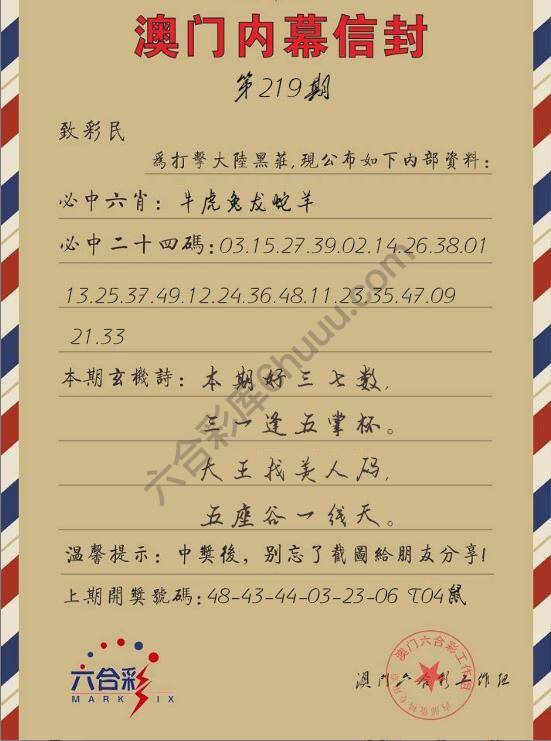 澳门内幕信封
第219期
致彩民
為打擊大陸黑莊,現公布如下內部資料:
必中六肖: 牛虎兔龙蛇羊
必中二十四碼:03.15.27.39.02.14.26.38.01
13.25.37.49.12.24.36.48.11.23.35.47.09
21.33
本期玄機詩: 本期好三七数,
三一逢五掌杯。
大王找美人码,
五座谷一线天。
温馨提示: 中獎後, 别忘了截圖給朋友分享!
上期開獎號碼:48-43-44-03-23-06 T04鼠
六合彩
MARK SIX
澳门六合彩工作组
澳门六合彩工作组
六合彩库6huuu.com